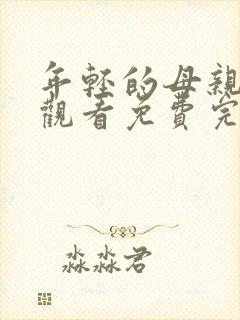 年轻的母亲
觀看免費完
淼淼君